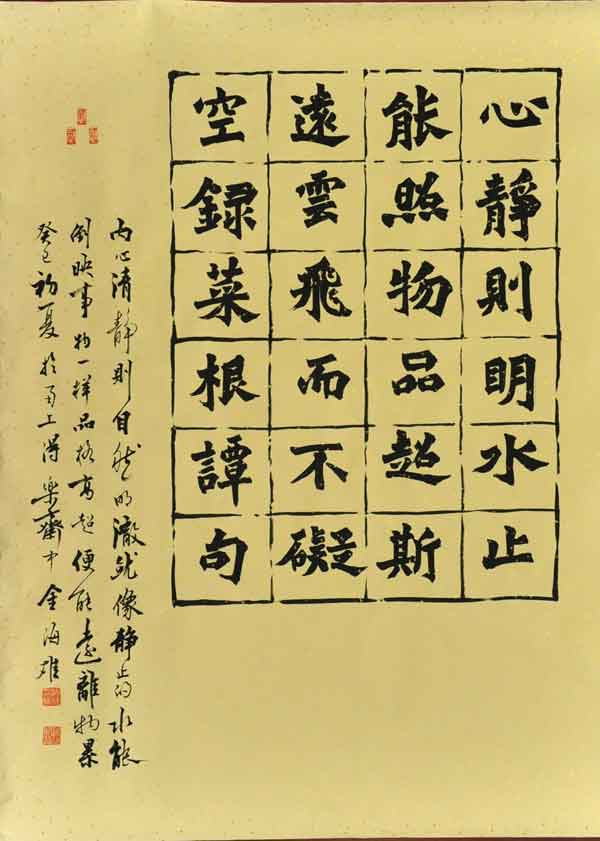 心靜則明水止
能照物品超斯
遠雲飛而不礙
空録菜根譚句
内心清静則自然明澈就像静止的水能
倒映事物一样品格高超便能遠離物累
癸巳初夏於甬上得樂齋中金海雄